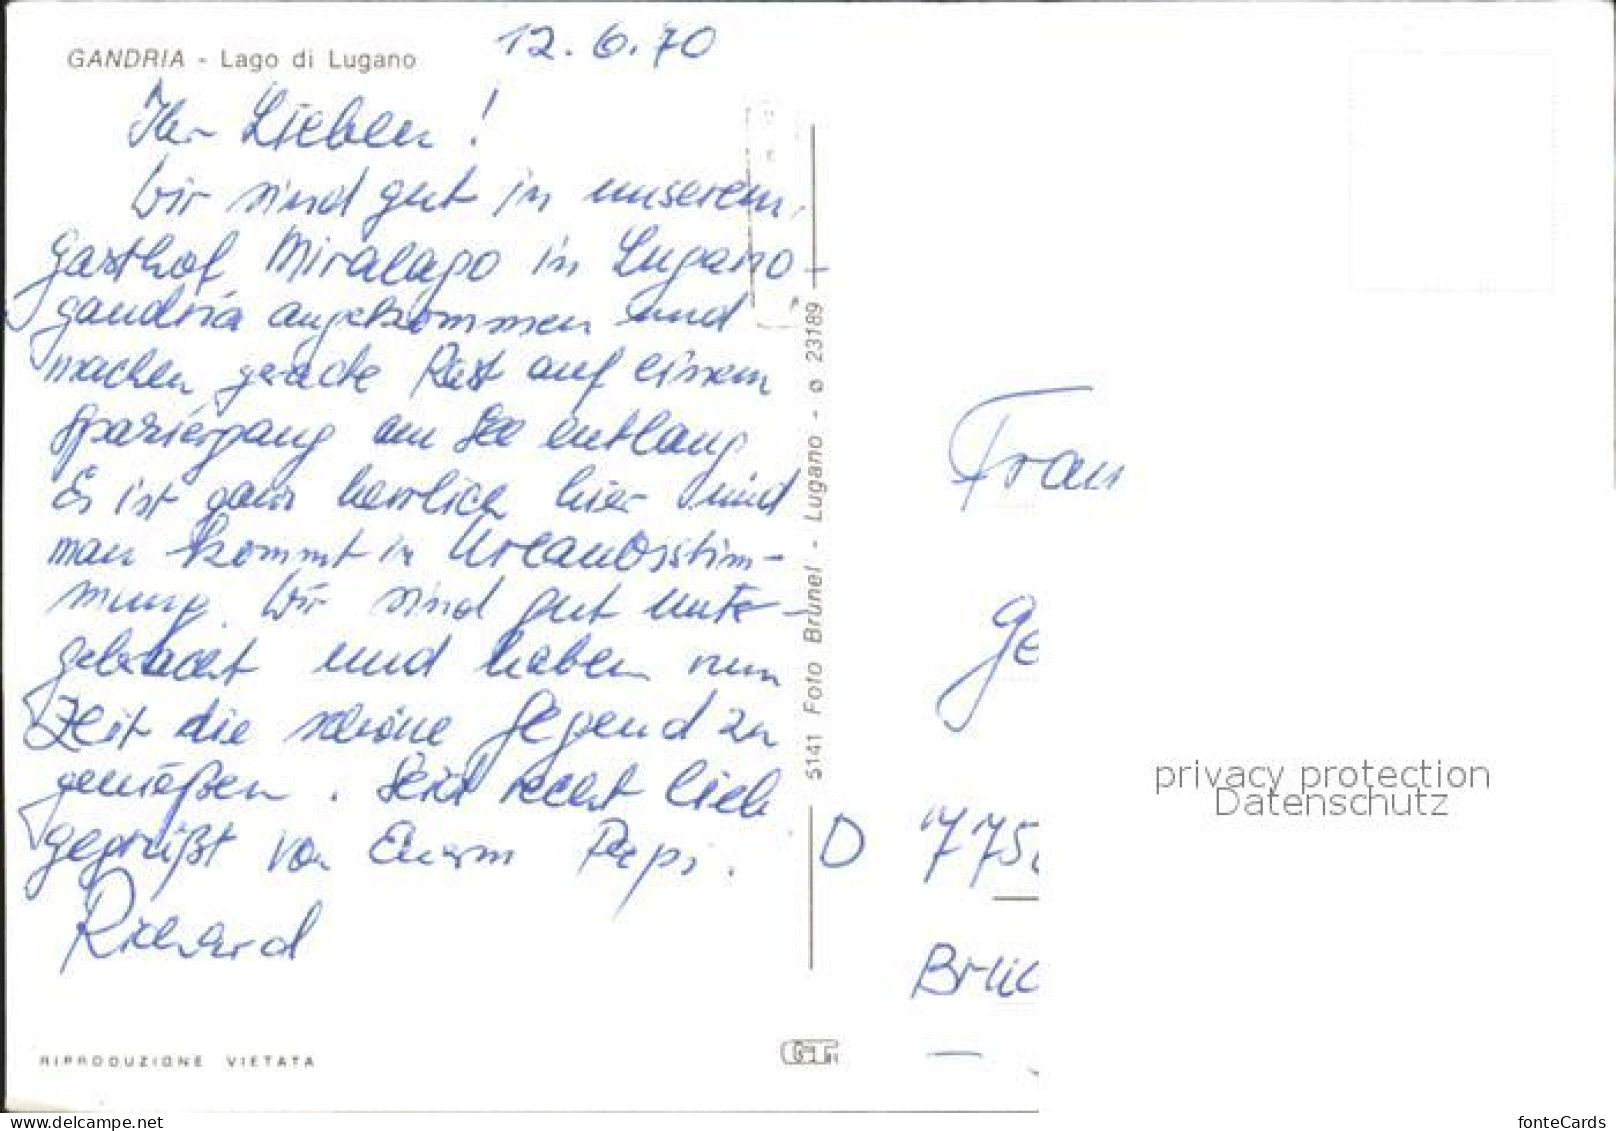 GANDRIA - Lago di Lugano
12.6.70
Ihr Lieben!
Wir sind gut in unserem
Gasthof Miralago in Lugano-
gandria angekommen und
machen gerade Rast auf einem
Spaziergang am See entlang
Es ist ganz herrlich hier und
man kommt in Urlaubsstim-
mung. Wir sind gut unter-
gebracht und haben nun
Zeit die schöne Gegend zu
genießen. Seid recht lieb
gegrüßt von Eurem Pepi.
Richard
RIPRODUZIONE VIETATA
5141 Foto Brunel - Lugano - o 23189
Frau
Ge
D 775
Brüc
privacy protection
Datenschutz
delcampe.net
fonteCards